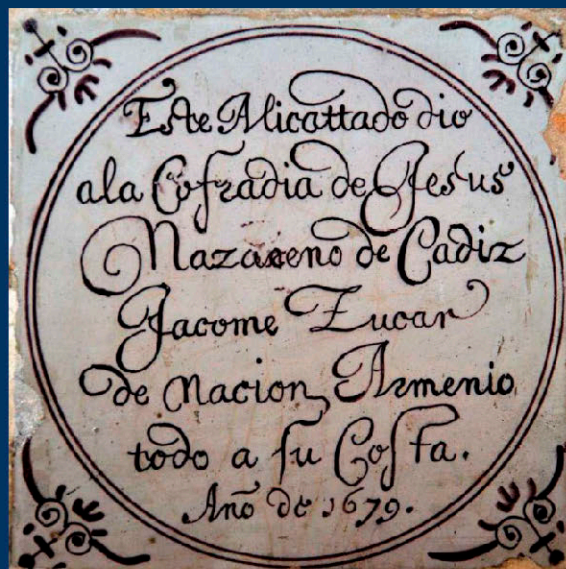 Este Alicattado dio
ala Cofradia de Jesus
Nazareno de Cadiz
Jacome Zucar
de nacion Armenio
todo a su Costa.
Año de 1679.